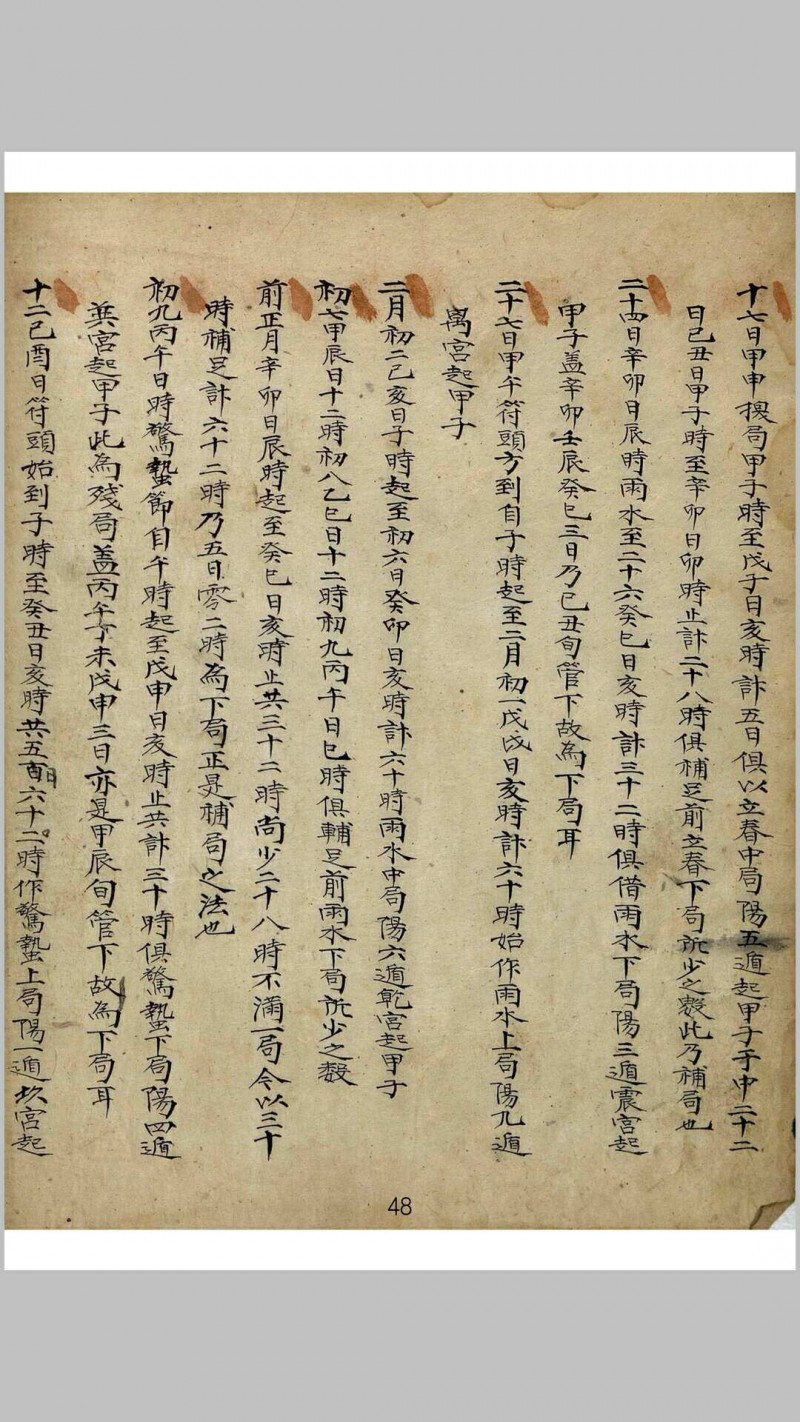 十七日甲申換局甲子時至戊子日亥時計五日俱以立春中局陽五遁起甲子于中二十二
日己丑日甲子時至辛卯日卯時止計二十八時俱補足前立春下局所少之数此乃補局也
二十四日辛卯日辰時雨水至二十六癸巳日亥時計三十二時俱借雨水下局陽三遁震宮起
甲子盖辛卯壬辰癸巳三日乃己丑旬管下故為下局耳
二十七日甲午符頭方到自子時起至二月初一戊戌日亥時計六十時始作雨水上局陽九遁
离宮起甲子
二月初二己亥日子時起至初六日癸卯日亥時計六十時雨水中局陽六遁乾宮起甲子
初七甲辰日十二時初八乙巳日十二時初九丙午日巳時俱輔足前雨水下局所少之数
前正月辛卯日辰時起至癸巳日亥時止共三十二時尚少二十八時不滿一局今以三十
時補足計六十二時乃五日零二時為下局正是補局之法也
初九丙午日時驚蟄節自午時起至戊申日亥時止共計三十時俱驚蟄下局陽四遁
巽宮起甲子此為殘局盖丙午丁未戊申三日亦是甲辰旬管下故為下局耳
十二己酉日符頭始到子時至癸丑日亥時共五日六十時作驚蟄上局陽一遁坎宮起
48